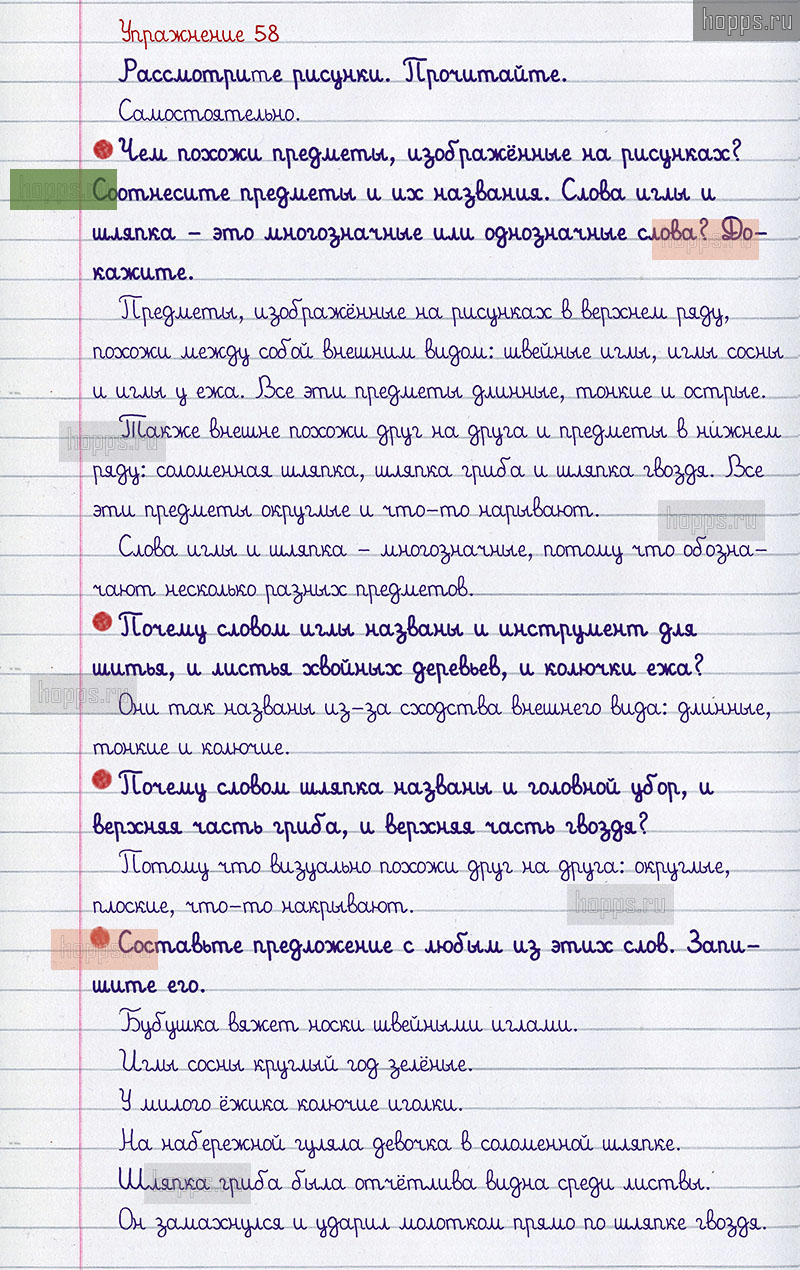 hopps.ru
Упражнение 58
Рассмотрите рисунки. Прочитайте.
Самостоятельно.
Чем похожи предметы, изображённые на рисунках?
Соотнесите предметы и их названия. Слова иглы и
шляпка – это многозначные или однозначные слова? До-
кажите.
Предметы, изображённые на рисунках в верхнем ряду,
похожи между собой внешним видом: швейные иглы, иглы сосны
и иглы у ежа. Все эти предметы длинные, тонкие и острые.
Также внешне похожи друг на друга и предметы в нижнем
ряду: соломенная шляпка, шляпка гриба и шляпка гвоздя. Все
эти предметы округлые и что-то нарывают.
Слова иглы и шляпка – многозначные, потому что обозна-
чают несколько разных предметов.
Почему словом иглы названы и инструмент для
шитья, и листья хвойных деревьев, и колючки ежа?
Они так названы из-за сходства внешнего вида: длинные,
тонкие и колючие.
Почему словом шляпка названы и головной убор, и
верхняя часть гриба, и верхняя часть гвоздя?
Потому что визуально похожи друг на друга: округлые,
плоские, что-то накрывают.
Составьте предложение с любым из этих слов. Запи-
шите его.
Бубушка вяжет носки швейными иглами.
Иглы сосны круглый год зелёные.
У милого ёжика колючие иголки.
На набережной гуляла девочка в соломенной шляпке.
Шляпка гриба была отчётлива видна среди листвы.
Он замахнулся и ударил молотком прямо по шляпке гвоздя.